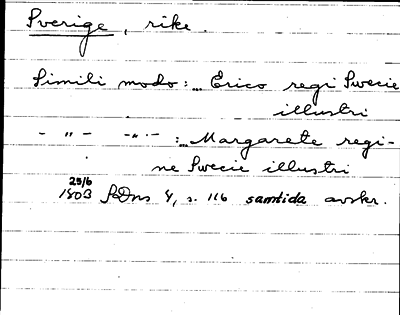 Sverige, rike.
Simili modo: ... Erico regi Swecie
illustri
- " - - " - : ... Margarete regi-
ne Swecie illustri
25/6
1303 SDns 4, s. 116 samtida avskr.